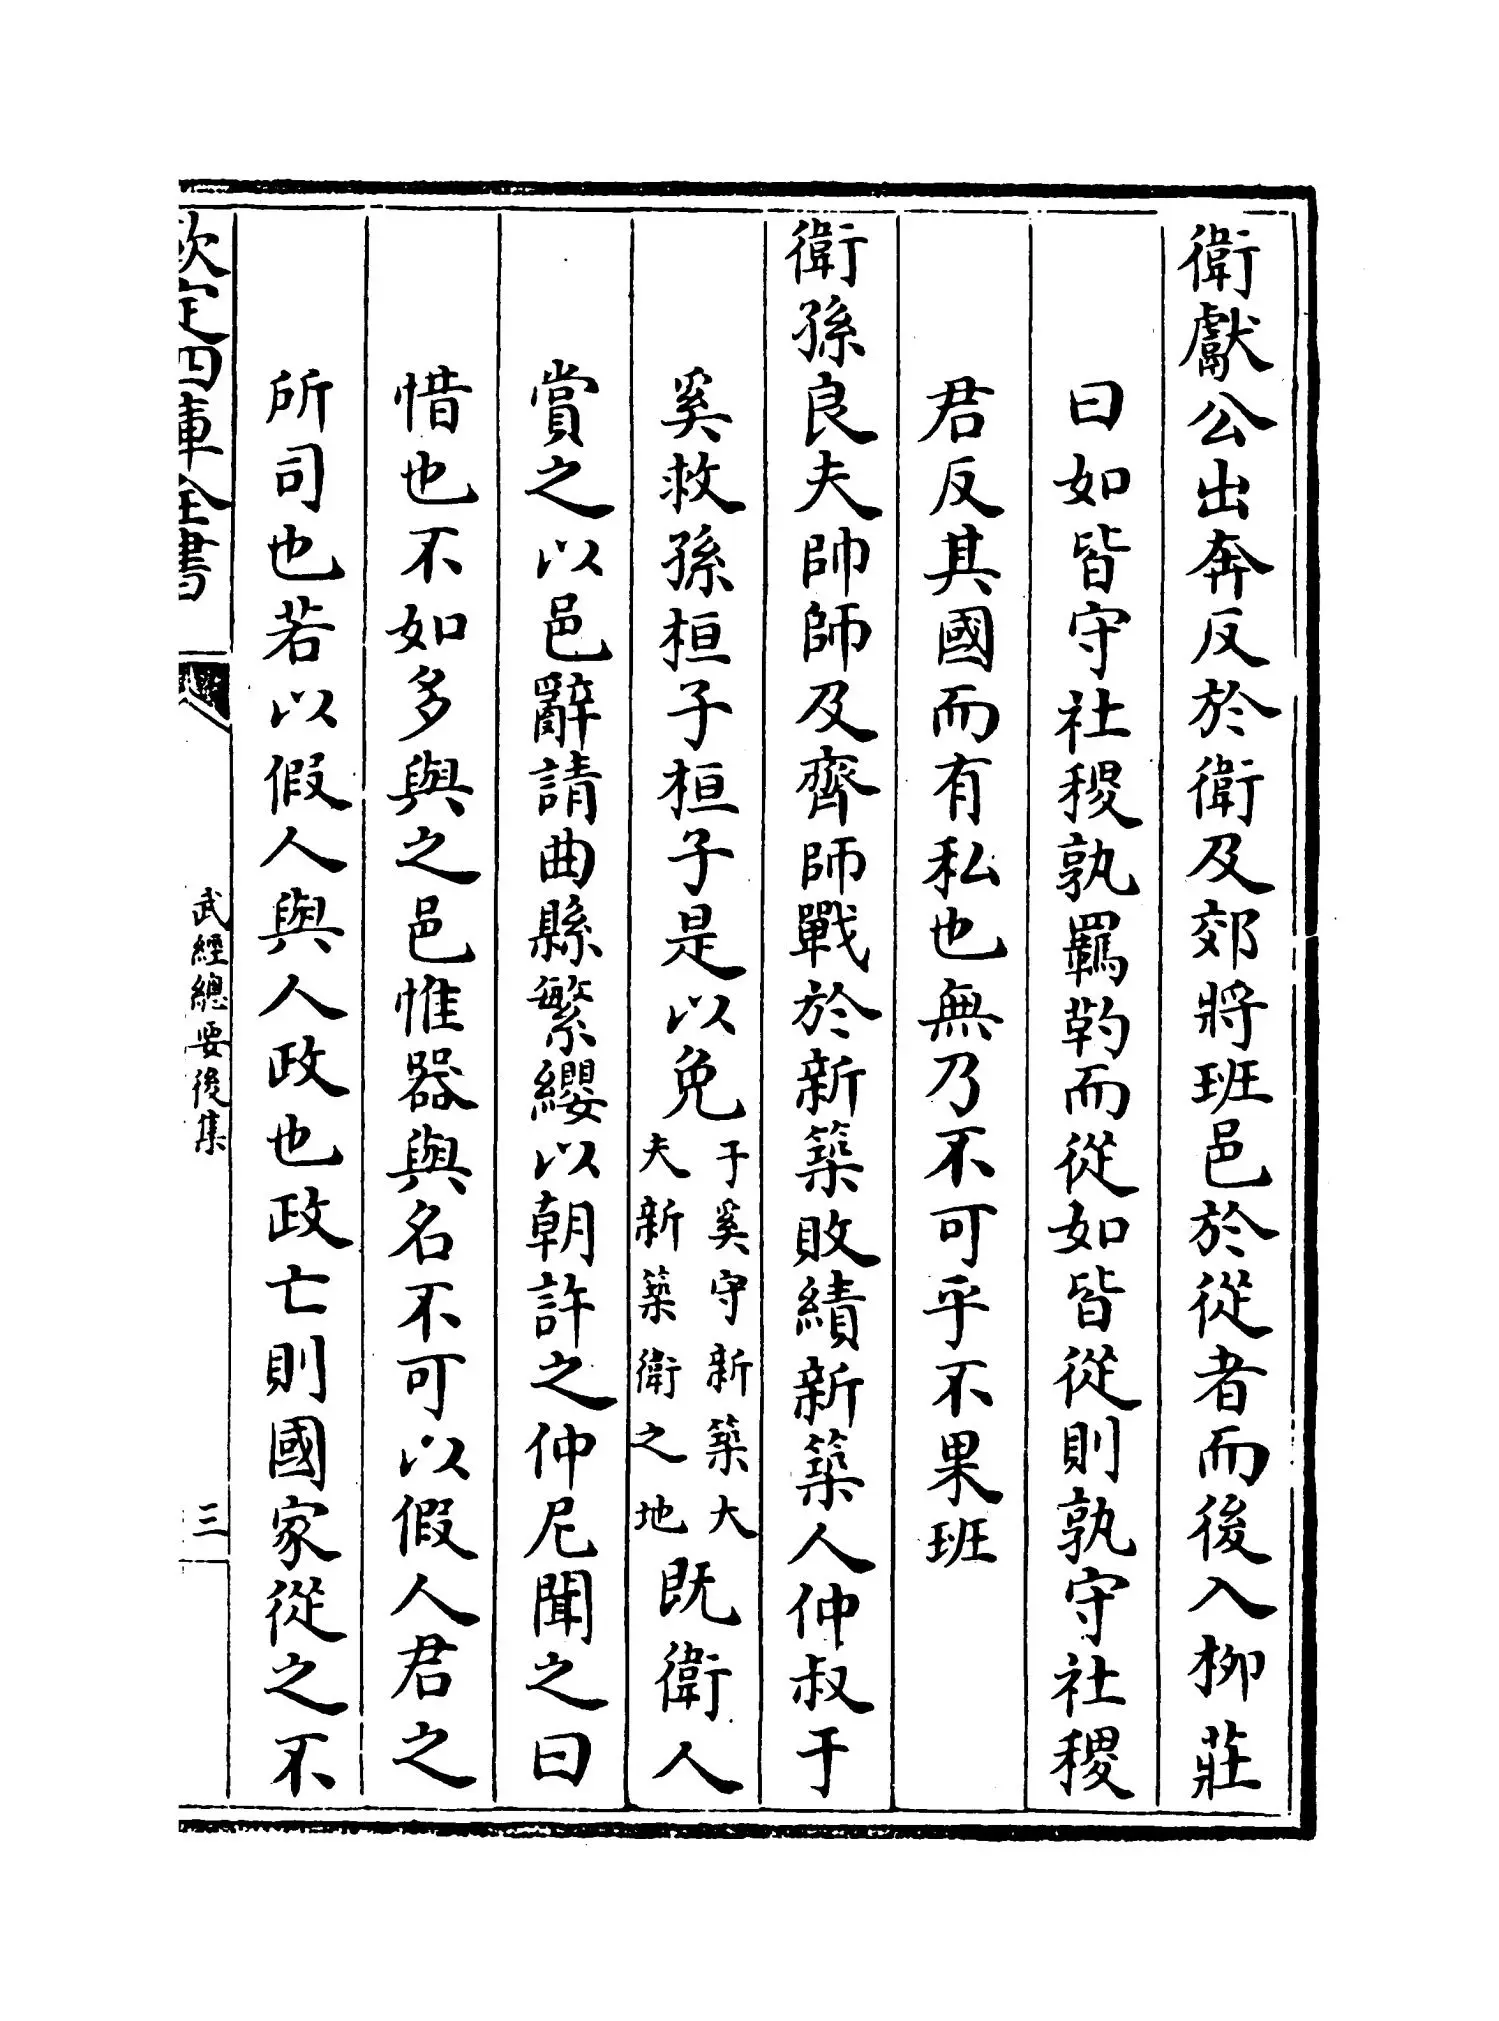 衛獻公出奔反於衛及郊將班邑於從者而後入柳莊
曰如皆守社稷孰羈靮而從如皆從則孰守社稷
君反其國而有私也無乃不可乎不果班
衛孫良夫帥師及齊師戰於新築敗績新築人仲叔于
奚救孫桓子桓子是以免于奚守新築大夫新築衛之地既衛人
賞之以邑辭請曲縣繁纓以朝許之仲尼聞之曰
惜也不如多與之邑惟器與名不可以假人君之
所司也若以假人與人政也政亡則國家從之不
欽定四庫全書
武經總要後集
三